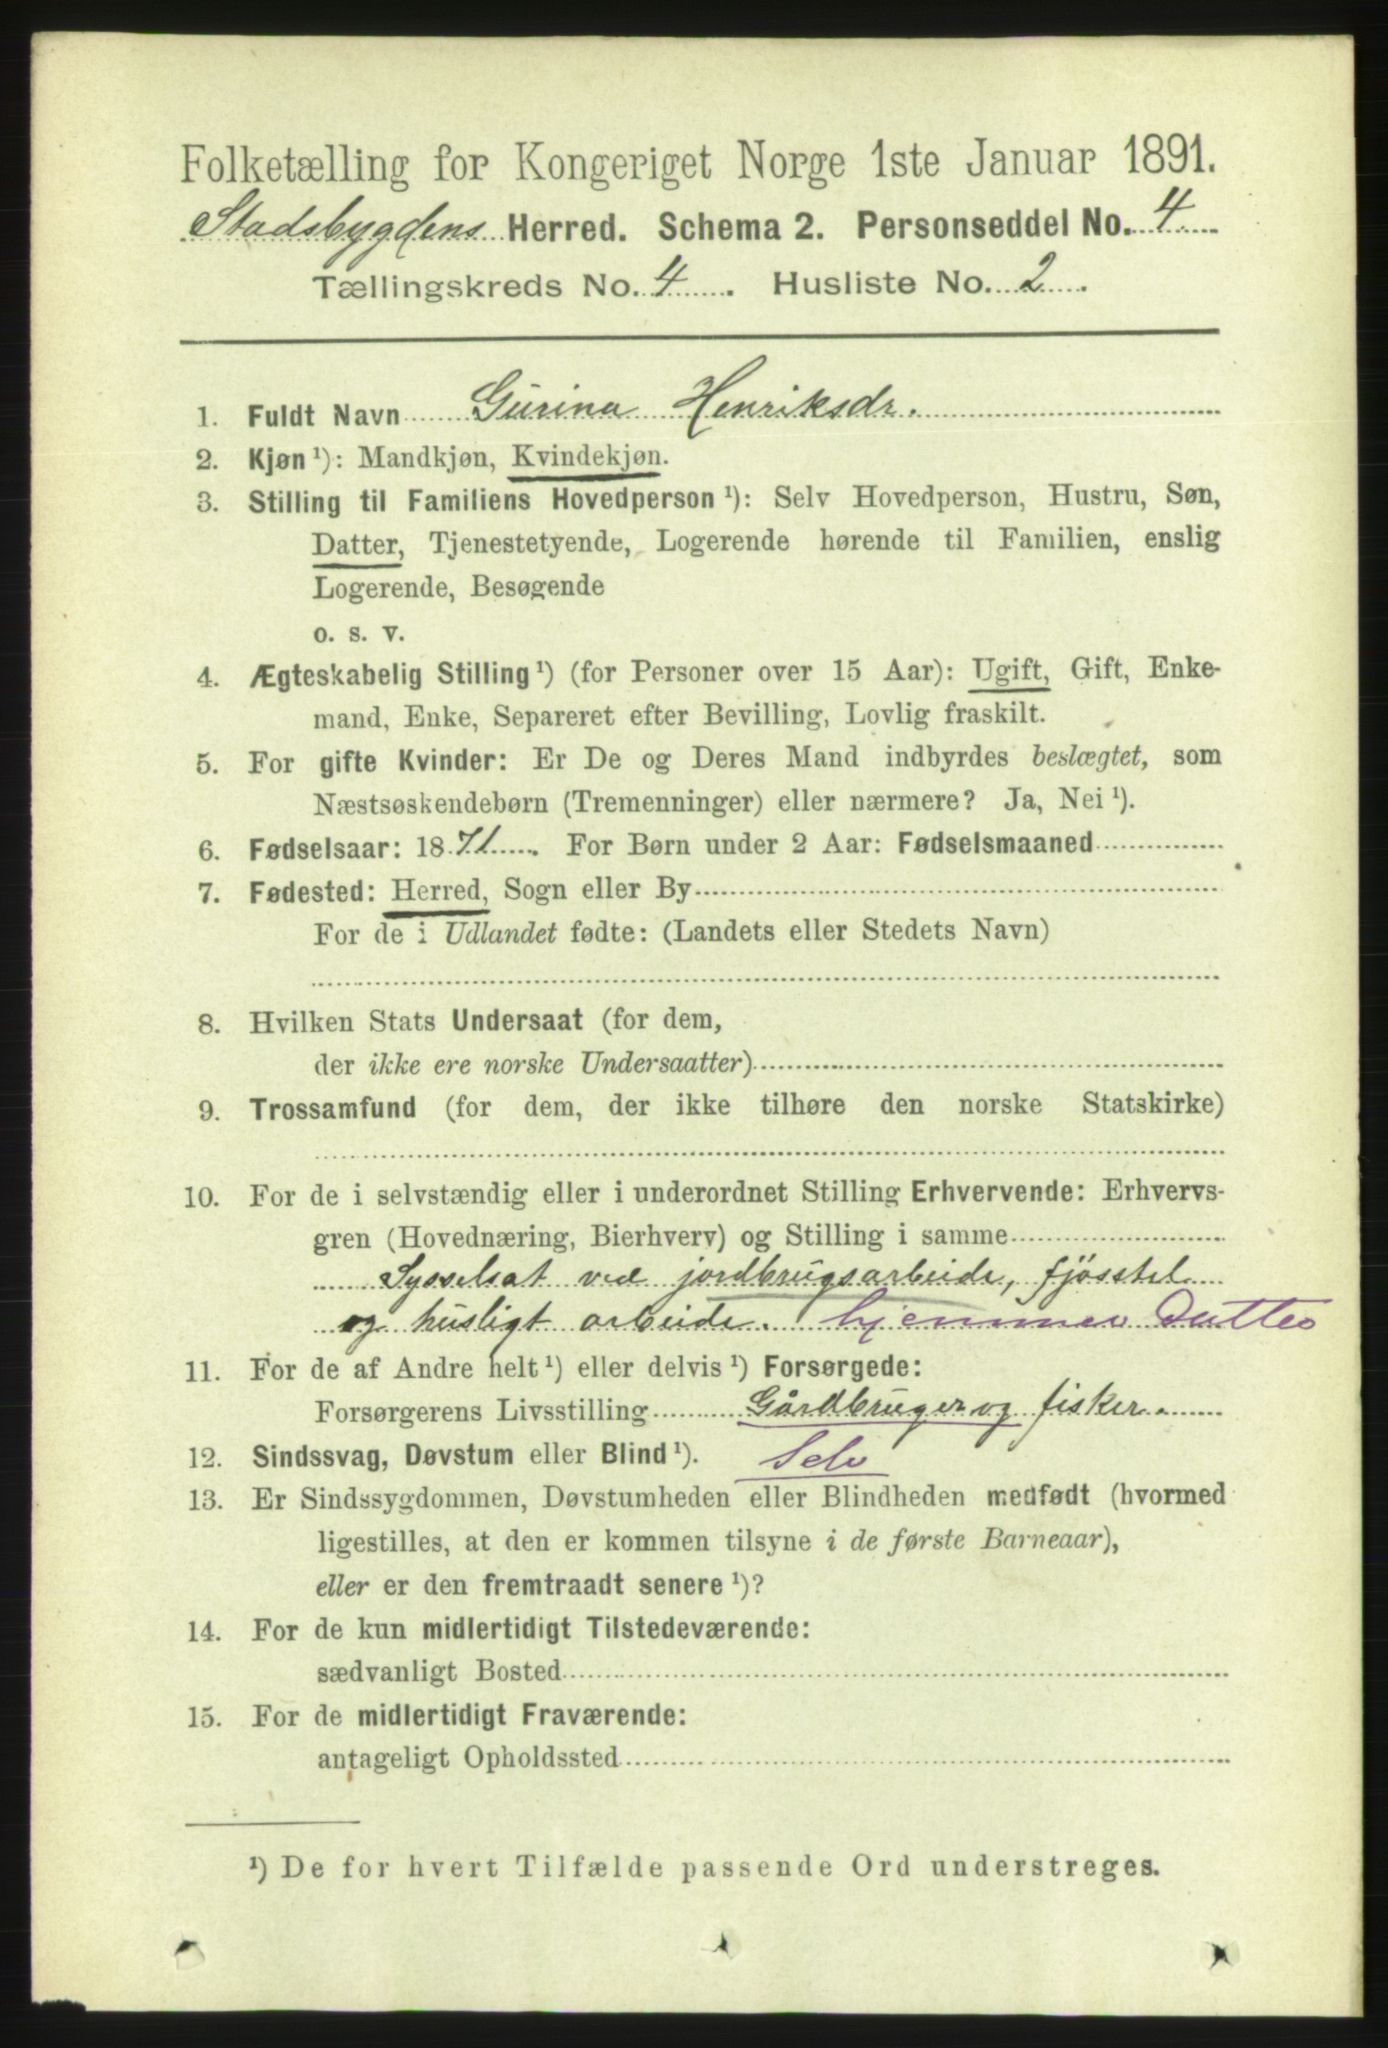 Folketælling for Kongeriget Norge 1ste Januar 1891.
Stadsbygdens Herred. Schema 2. Personseddel No. 4
Tællingskreds No. 4. Husliste No. 2.
1. Fuldt Navn Gurina Henriksdr.
2. Kjøn ¹): Mandkjøn, Kvindekjøn.
3. Stilling til Familiens Hovedperson ¹): Selv Hovedperson, Hustru, Søn,
Datter, Tjenestetyende, Logerende hørende til Familien, enslig
Logerende, Besøgende
o. s. v.
4. Ægteskabelig Stilling ¹) (for Personer over 15 Aar): Ugift, Gift, Enke-
mand, Enke, Separeret efter Bevilling, Lovlig fraskilt.
5. For gifte Kvinder: Er De og Deres Mand indbyrdes beslægtet, som
Næstsøskendebørn (Tremenninger) eller nærmere? Ja, Nei ¹).
6. Fødselsaar: 1871. For Børn under 2 Aar: Fødselsmaaned
7. Fødested: Herred, Sogn eller By
For de i Udlandet fødte: (Landets eller Stedets Navn)
8. Hvilken Stats Undersaat (for dem,
der ikke ere norske Undersaatter)
9. Trossamfund (for dem, der ikke tilhøre den norske Statskirke)
10. For de i selvstændig eller i underordnet Stilling Erhvervende: Erhvervs-
gren (Hovednæring, Bierhverv) og Stilling i samme
Sysselsat ved jordbrugsarbeide, fjøsstel
og husligt arbeide. hjemmev Datter
11. For de af Andre helt ¹) eller delvis ¹) Forsørgede:
Forsørgerens Livsstilling Gårdbruger og fisker.
12. Sindssvag, Døvstum eller Blind ¹). Selv
13. Er Sindssygdommen, Døvstumheden eller Blindheden medfødt (hvormed
ligestilles, at den er kommen tilsyne i de første Barneaar),
eller er den fremtraadt senere ¹)?
14. For de kun midlertidigt Tilstedeværende:
sædvanligt Bosted
15. For de midlertidigt Fraværende:
antageligt Opholdssted
¹) De for hvert Tilfælde passende Ord understreges.